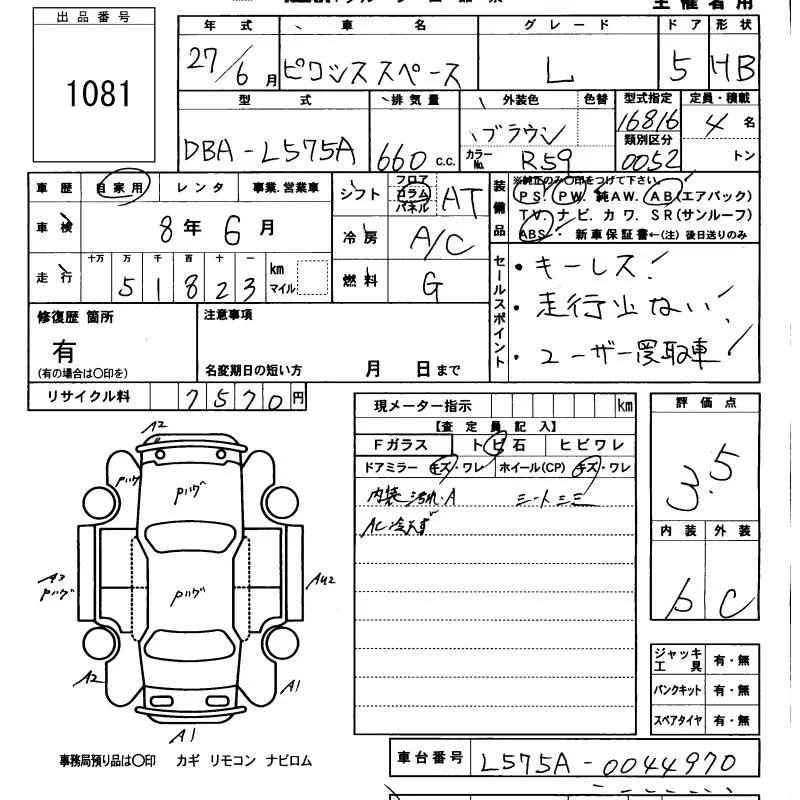 主催者用
出品番号
1081
年式 車名 グレード ドア 形状
27/6月 ピクシススペース L 5 HB
型式 排気量 外装色 色替 型式指定 定員・積載
DBA-L575A 660 c.c. ブラウン 16816 4名
カラーNo. R59 類別区分 0052 トン
車歴 自家用 レンタ 事業.営業車
車検 8年6月
走行 十万 万 千 百 十 一 km マイル
51823
シフト フロア コラム パネル AT
冷房 A/C
燃料 G
装備品
※純正のみ〇印をつけて下さい。
PS. PW. 純AW. AB(エアバック)
TV. ナビ. カワ. SR(サンルーフ)
ABS. 新車保証書←(注)後日送りのみ
セールスポイント
・キーレス!
・走行少ない!
・ユーザー買取車!
修復歴 箇所
有
(有の場合は〇印を)
注意事項
名変期日の短い方 月 日まで
リサイクル料 7570円
現メーター指示 km
【査定員記入】
Fガラス トビ石 ヒビワレ
ドアミラー キズ・ワレ ホイール(CP) キズ・ワレ
内装汚れ・A シートミミ
AC冷えず
評価点
3.5
内装 外装
b C
ジャッキ工具 有・無
パンクキット 有・無
スペアタイヤ 有・無
A2
Pハゲ
Pハゲ
A3
Pハゲ
Pハゲ
AU2
A2
A1
A1
事務局預り品は〇印 カギ リモコン ナビロム
車台番号 L575A-0044970